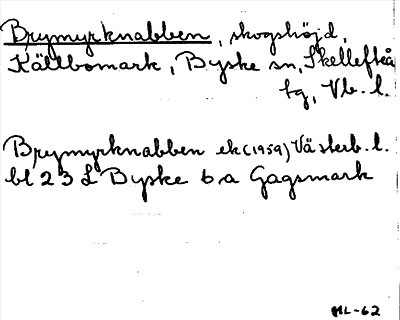 Brymyrknabben, skogshöjd,
Källbomark, Byske sn, Skellefteå
tg, Vb. l.
Brymyrknabben ek (1959) Västerb. l.
bl 23 L Byske 6 a Gagsmark
ML-62